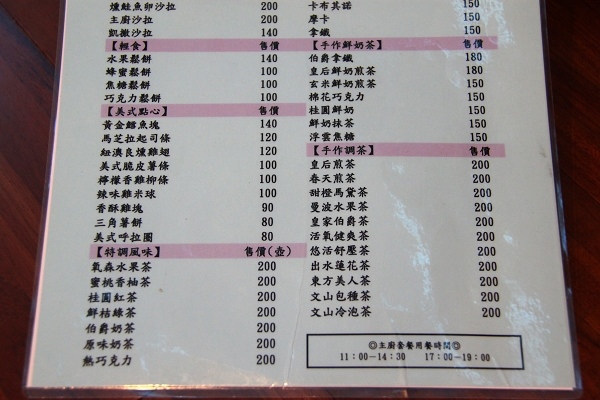 燻鮭魚卵沙拉 200
主廚沙拉 200
凱撒沙拉 140
【輕食】 售價
水果鬆餅 140
蜂蜜鬆餅 100
焦糖鬆餅 100
巧克力鬆餅 100
【美式點心】 售價
黃金鱈魚塊 140
馬芝拉起司條 120
紐澳良燻雞翅 120
美式脆皮薯條 100
檸檬香雞柳條 100
辣味雞米球 100
香酥雞塊 90
三角薯餅 80
美式呼拉圈 80
【特調風味】 售價(壺)
氧森水果茶 200
蜜桃香柚茶 200
桂圓紅茶 200
鮮桔綠茶 200
伯爵奶茶 200
原味奶茶 200
熱巧克力 200
卡布其諾 150
摩卡 150
拿鐵 150
【手作鮮奶茶】 售價
伯爵拿鐵 180
皇后鮮奶煎茶 180
玄米鮮奶煎茶 150
棉花巧克力 150
桂圓鮮奶 150
鮮奶抹茶 150
浮雲焦糖 150
【手作調茶】 售價
皇后煎茶 200
春天煎茶 200
甜橙馬黛茶 200
曼波水果茶 200
皇家伯爵茶 200
活氧健爽茶 200
悠活舒壓茶 200
出水蓮花茶 200
東方美人茶 200
文山包種茶 200
文山冷泡茶 200
◎主廚套餐用餐時間◎
11：00－14：30 17：00－19：00